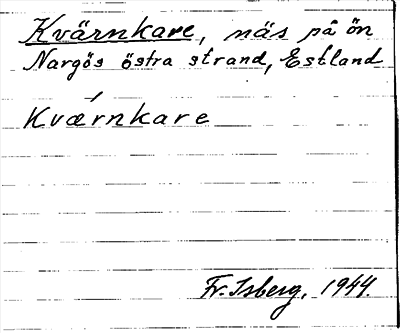 Kvärnkare, näs på ön
Nargös östra strand, Estland
Kvǽrnkare
Fr. Isberg, 1944.